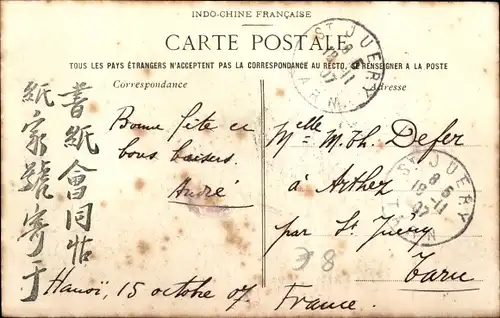 INDO-CHINE FRANÇAISE
CARTE POSTALE
TOUS LES PAYS ÉTRANGERS N'ACCEPTENT PAS LA CORRESPONDANCE AU RECTO, SE RENSEIGNER A LA POSTE
Correspondance
Adresse
Bonne fête et
bons baisers.
André
書紙會同帖
紙家號寄于
Hanoï, 15 octobre 07
Melle M. Th. Defer
à Arthez
par St Juéry
Tarn
France.
ST JUERY
8 5
18-11
07
TARN
ST JUERY
8 5
18-11
07
TARN